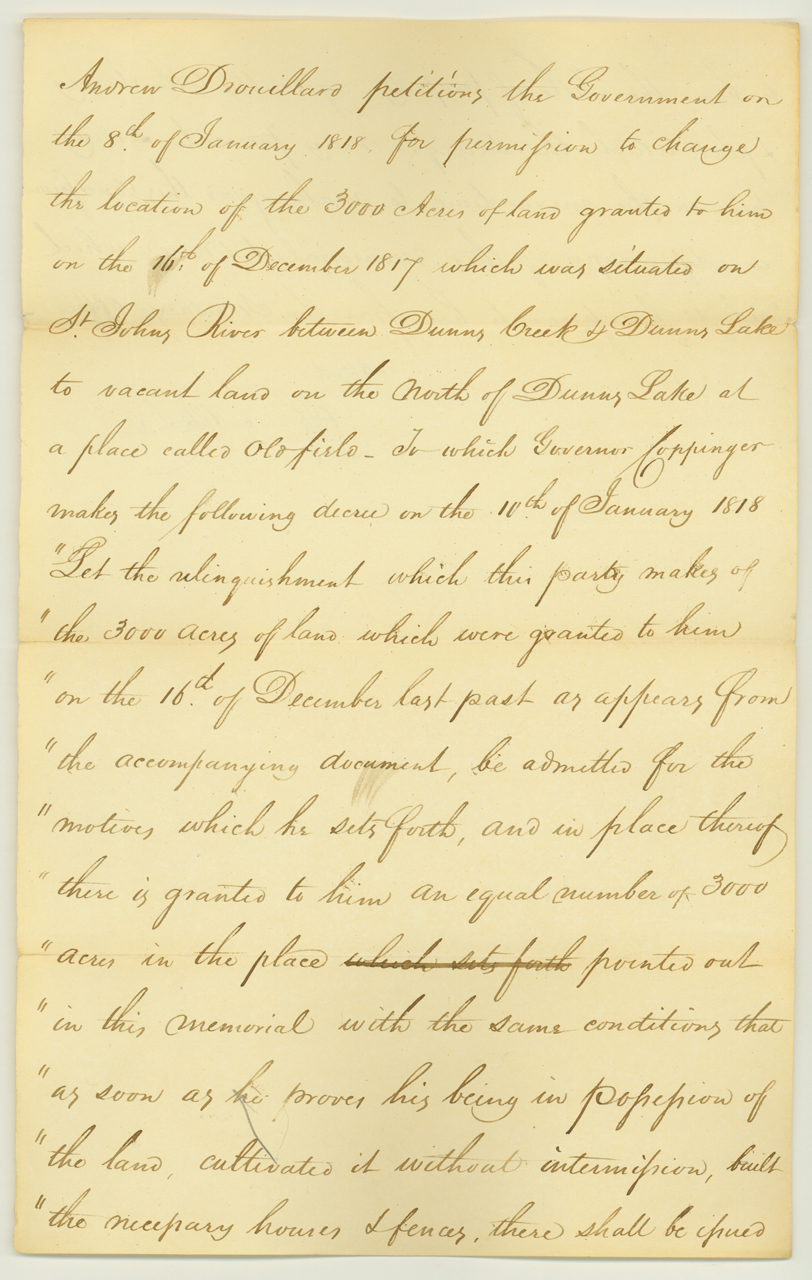 Andrew Drouillard petitions the Government on
the 8.th of January 1818. for permission to change
the location of the 3000 Acres of land granted to him
on the 16.th of December 1817 which was situated on
St. Johns River between Dunns Creek & Dunns Lake
to vacant land on the North of Dunns Lake at
a place called Oldfield - To which Governor Coppinger
makes the following decree on the 10th of January 1818
"Let the relinquishment which this party makes of
"the 3000 acres of land which were granted to him
"on the 16.th of December last past as appears from
"the accompanying document, be admitted for the
"motives which he sets forth, and in place thereof
"there is granted to him an equal number of 3000
"acres in the place which sets forth pointed out
"in this memorial with the same conditions that
"as soon as he proves his being in possession of
"the land, cultivated it without intermission, built
"the necessary houses & fences, there shall be issued